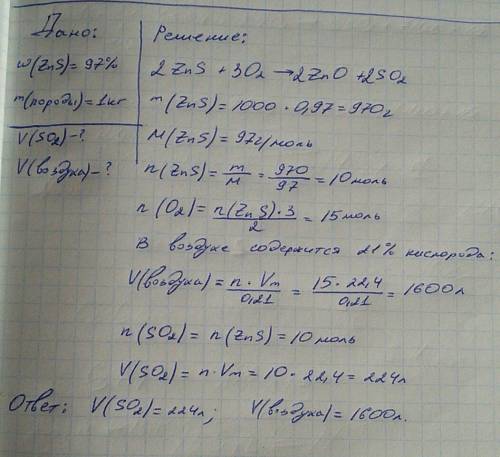 Дано:
ω(ZnS)=97%
m(породы)=1кг
V(SO₂)-?
V(воздуха)-?
Решение:
2ZnS + 3O₂ → 2ZnO + 2SO₂
m(ZnS)=1000·0,97=970г
M(ZnS)=97г/моль
n(ZnS)= m/M = 970/97 = 10моль
n(O₂)= n(ZnS)·3/2 = 15моль
В воздухе содержится 21% кислорода:
V(воздуха)= n·Vm/0,21 = 15·22,4/0,21 = 1600л
n(SO₂)=n(ZnS)=10моль
V(SO₂)=n·Vm=10·22,4=224л
Ответ: V(SO₂)=224л; V(воздуха)=1600л.